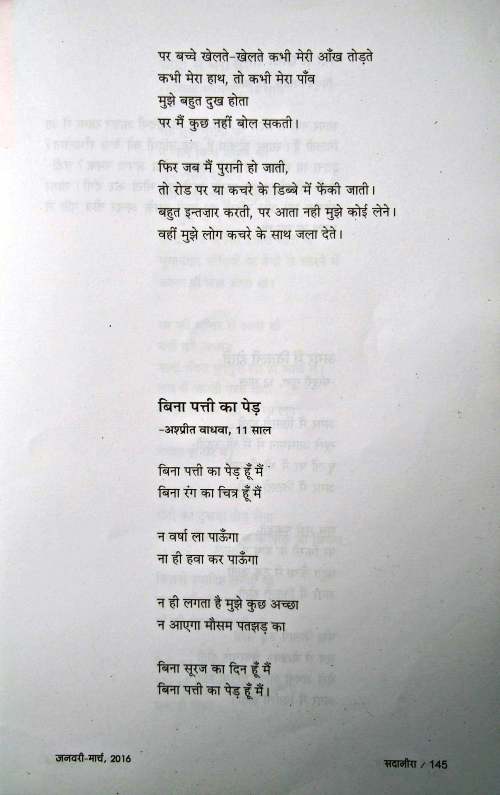 पर बच्चे खेलते-खेलते कभी मेरी आँख तोड़ते
कभी मेरा हाथ, तो कभी मेरा पाँव
मुझे बहुत दुख होता
पर मैं कुछ नहीं बोल सकती।
फिर जब मैं पुरानी हो जाती,
तो रोड पर या कचरे के डिब्बे में फेंकी जाती।
बहुत इन्तज़ार करती, पर आता नही मुझे कोई लेने।
वहीं मुझे लोग कचरे के साथ जला देते।
बिना पत्ती का पेड़
-अश्प्रीत वाधवा, 11 साल
बिना पत्ती का पेड़ हूँ मैं
बिना रंग का चित्र हूँ मैं
न वर्षा ला पाऊँगा
ना ही हवा कर पाऊँगा
न ही लगता है मुझे कुछ अच्छा
न आएगा मौसम पतझड़ का
बिना सूरज का दिन हूँ मैं
बिना पत्ती का पेड़ हूँ मैं।
जनवरी-मार्च, 2016
सदानीरा / 145